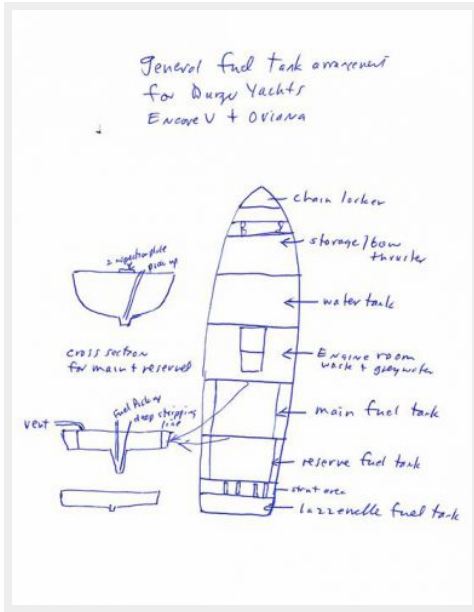 General fuel tank arrangement
for Burger Yachts
Encore V + Oviana
chain locker
storage/bow
thruster
water tank
Engine room
waste + greywater
main fuel tank
reserve fuel tank
strut area
Lazzenelle fuel tank
pick up
cross section
for main + reserved
Fuel Pick up
deep stripping
line
vent